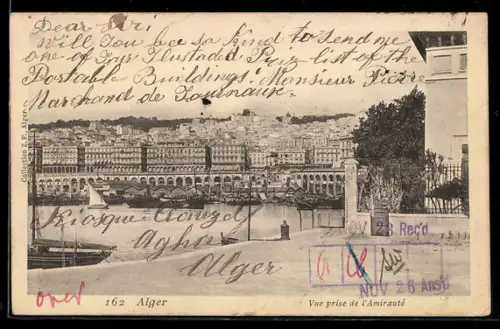 Dear Sir:
Will You bee so Kind to Send me
one of Your Ilustaded Priz list of the
Portable Buildings: Monsieur Pierre
Marchand de Journaux.
Kiosque Clauzel
Agha
Alger
Collection Z.F. Alger
NOV 23 Rec'd
NOV 26 Ans'd
over
162 Alger
Vue prise de l'Amirauté